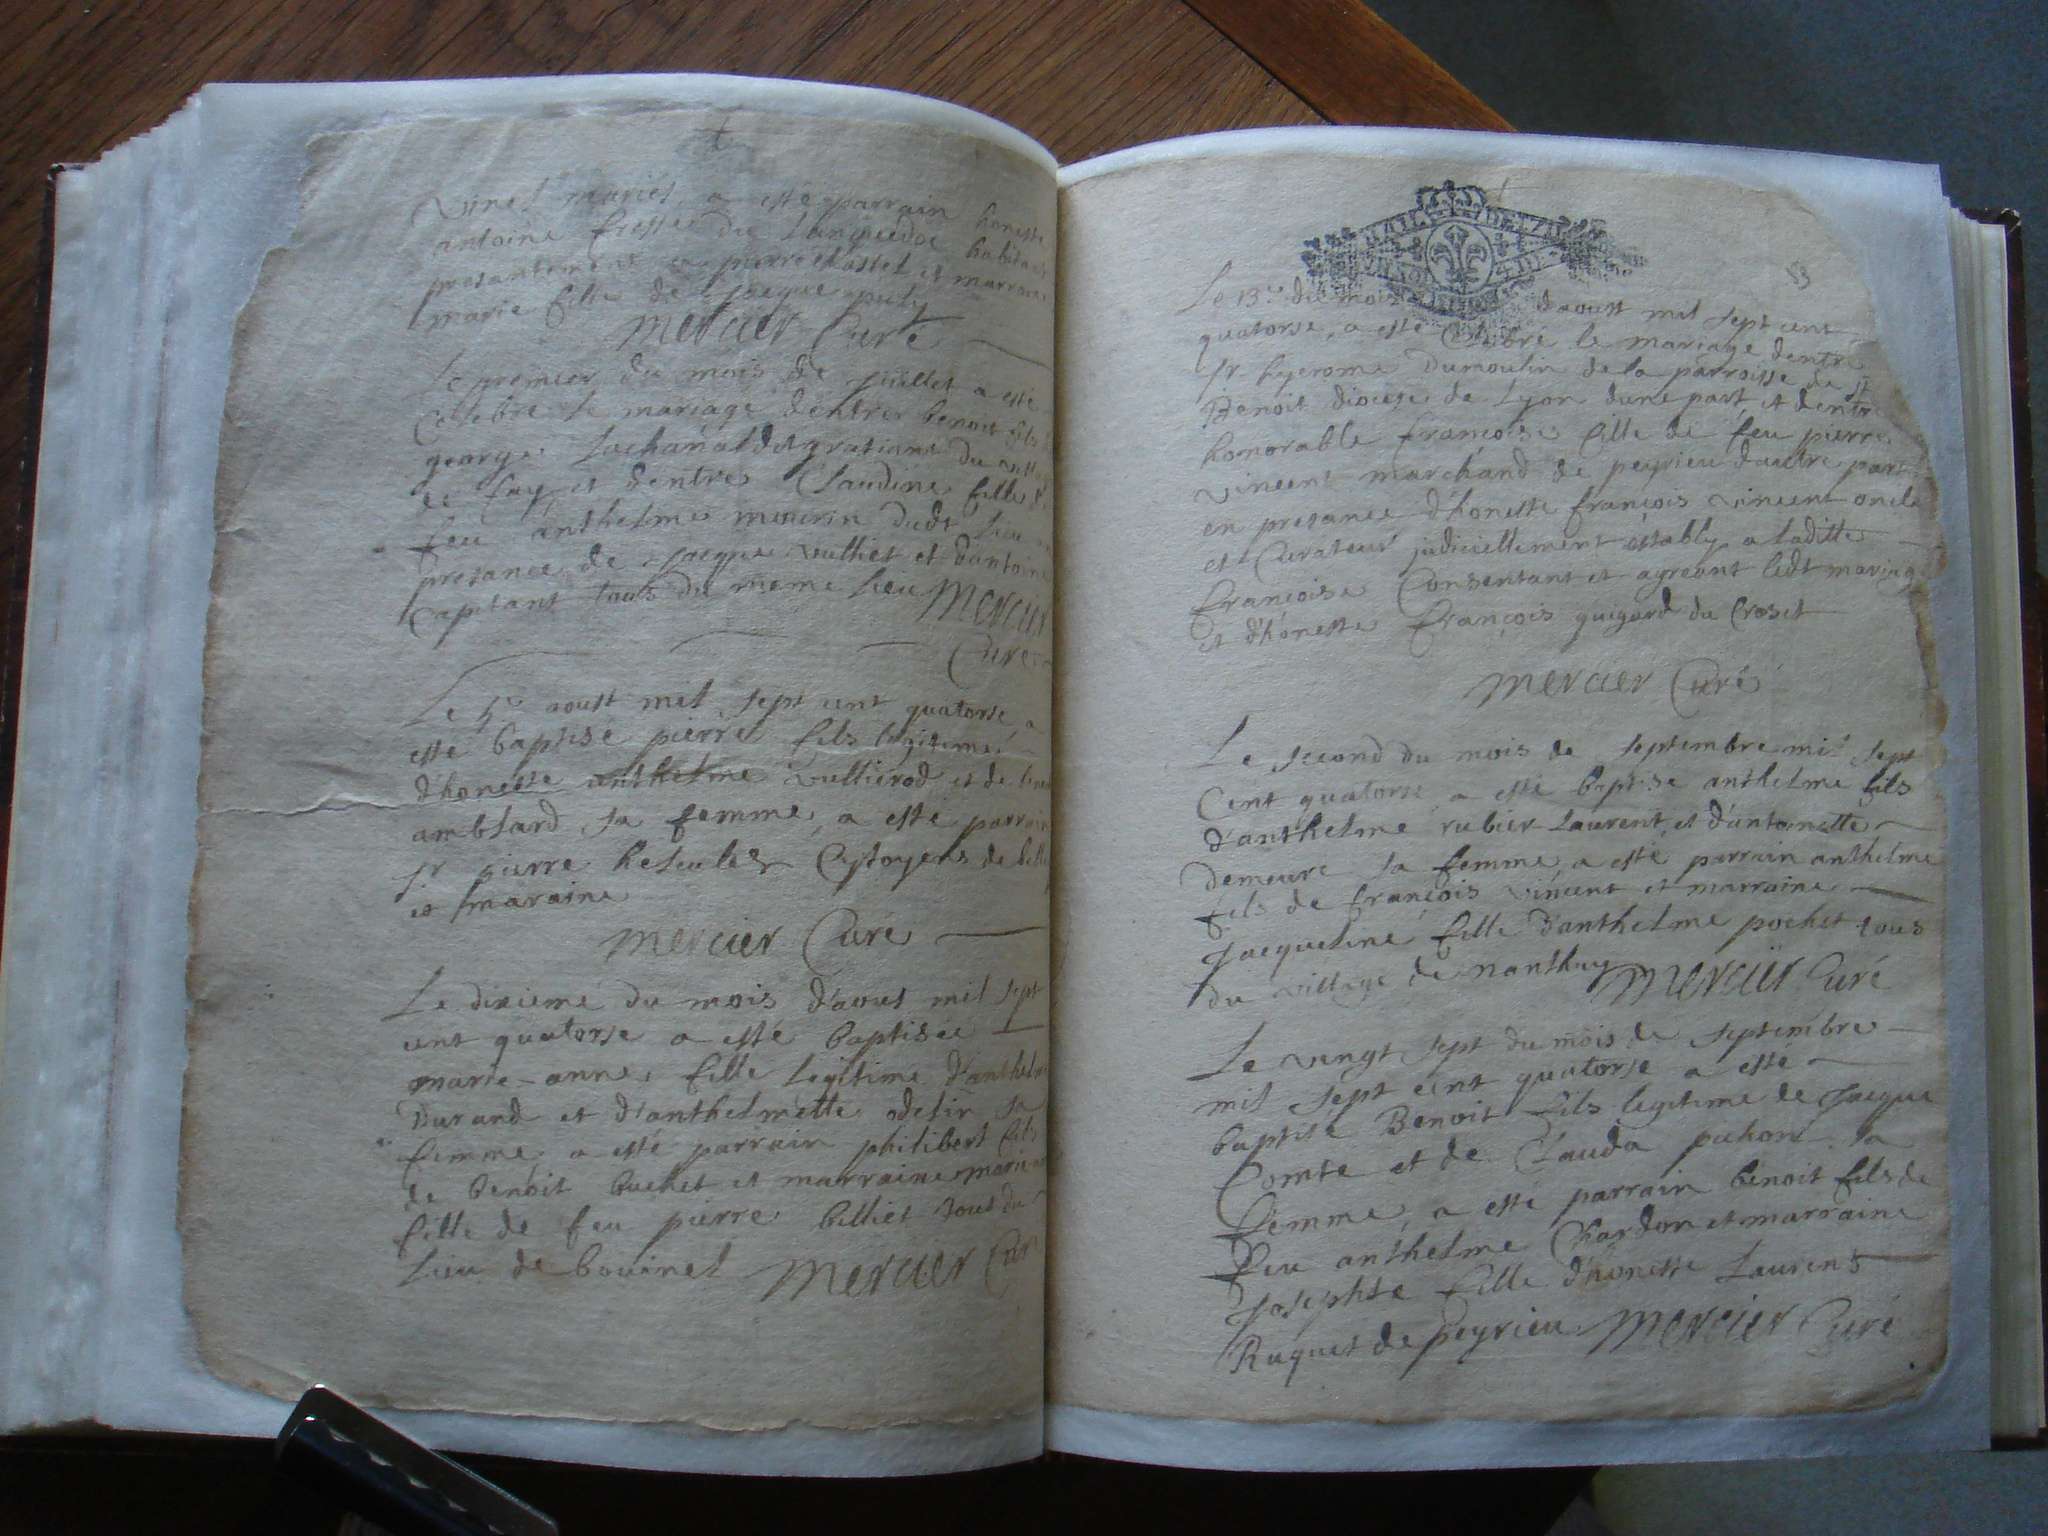 vinel mariés, a esté parrain honeste
antoine du Languedoc habitant
presantement a pierre chastel et marraine
marie fille de jacque
mercier Curé
Le premier du mois de juillet a esté
Celebré le mariage dentre benoit fils
george Lachanal dit gratiane du
de fay et dentre Claudine fille de
feu anthelme mourin dudt lieu
presance de jacque vulliet et dantoine
Capitant tous du meme lieu Mercier
Curé
Le 5e aoust mil sept cent quatorse a
esté baptisé pierre fils legitime
d'honeste anthelme vullierod et de
amblard sa femme, a esté parrain
sr pierre Citoyens de
et maraine
mercier Curé
Le dixieme du mois d'aout mil sept
cent quatorse a esté baptisée
marie-anne fille legitime d'anthelme
Durand et d'anthelmette odelin sa
femme, a esté parrain philibert fils
de benoit buchet et marraine marie
fille de feu pierre billiet tous du
lieu de bovinel mercier Curé
53
Le 13e du mois daoust mil sept cent
quatorse, a esté Celebré le mariage dentre
sr hyerome Dumoulin de la parroisse de st
Benoit diocese de Lyon dune part, et dentre
honorable françoise fille de feu pierre
vincent marchand de peyrieu dautre part
en presance d'honeste françois vincent oncle
et Curateur judiciellement estably a laditte
françoise Consentant et agreant ledt mariage
et d'honeste françois guigard du Croset
mercier Curé
Le second du mois de septembre mil sept
Cent quatorse a esté baptisé anthelme fils
d'anthelme rubier Laurent, et d'antoinette
demeure sa femme, a esté parrain anthelme
fils de françois vincent et marraine
jacqueline fille d'anthelme pochet tous
du village de nanthuy mercier Curé
Le vingt sept du mois de septembre
mil sept cent quatorse a esté
baptisé Benoit fils legitime de jacque
Comte et de Clauda pichon sa
femme, a esté parrain benoit fils de
feu anthelme Chardon et marraine
josephte fille d'honeste Laurens
Ruquet de peyrieu mercier Curé